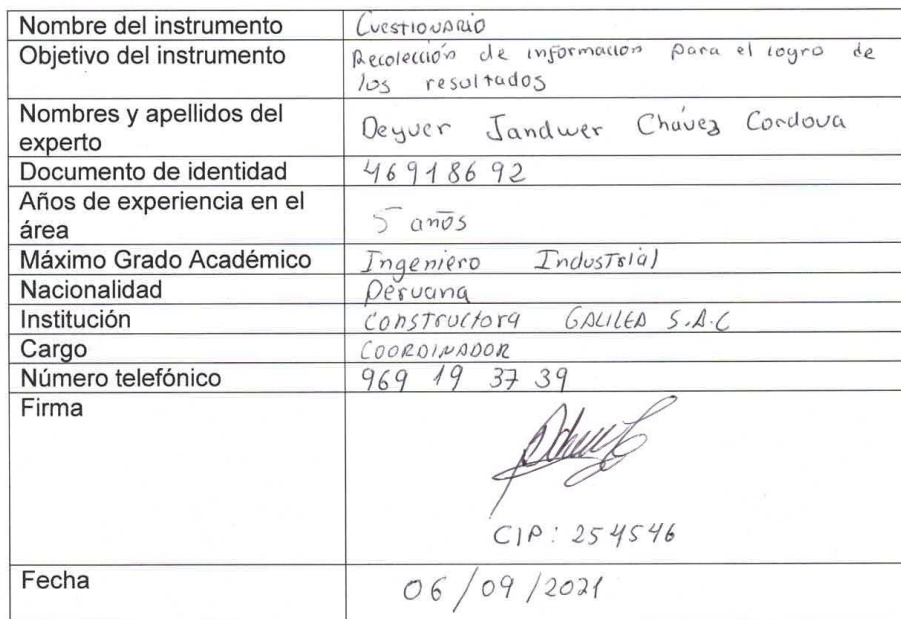 Nombre del instrumento Cuestionario
Objetivo del instrumento Recolección de informacion para el logro de
los resultados
Nombres y apellidos del
experto Deyver Jandwer Chávez Cordova
Documento de identidad 46918692
Años de experiencia en el
área 5 años
Máximo Grado Académico Ingeniero Industrial
Nacionalidad Peruana
Institución Constructora GALILEA S.A.C
Cargo COORDINADOR
Número telefónico 969 19 37 39
Firma
CIP: 254546
Fecha 06/09/2021